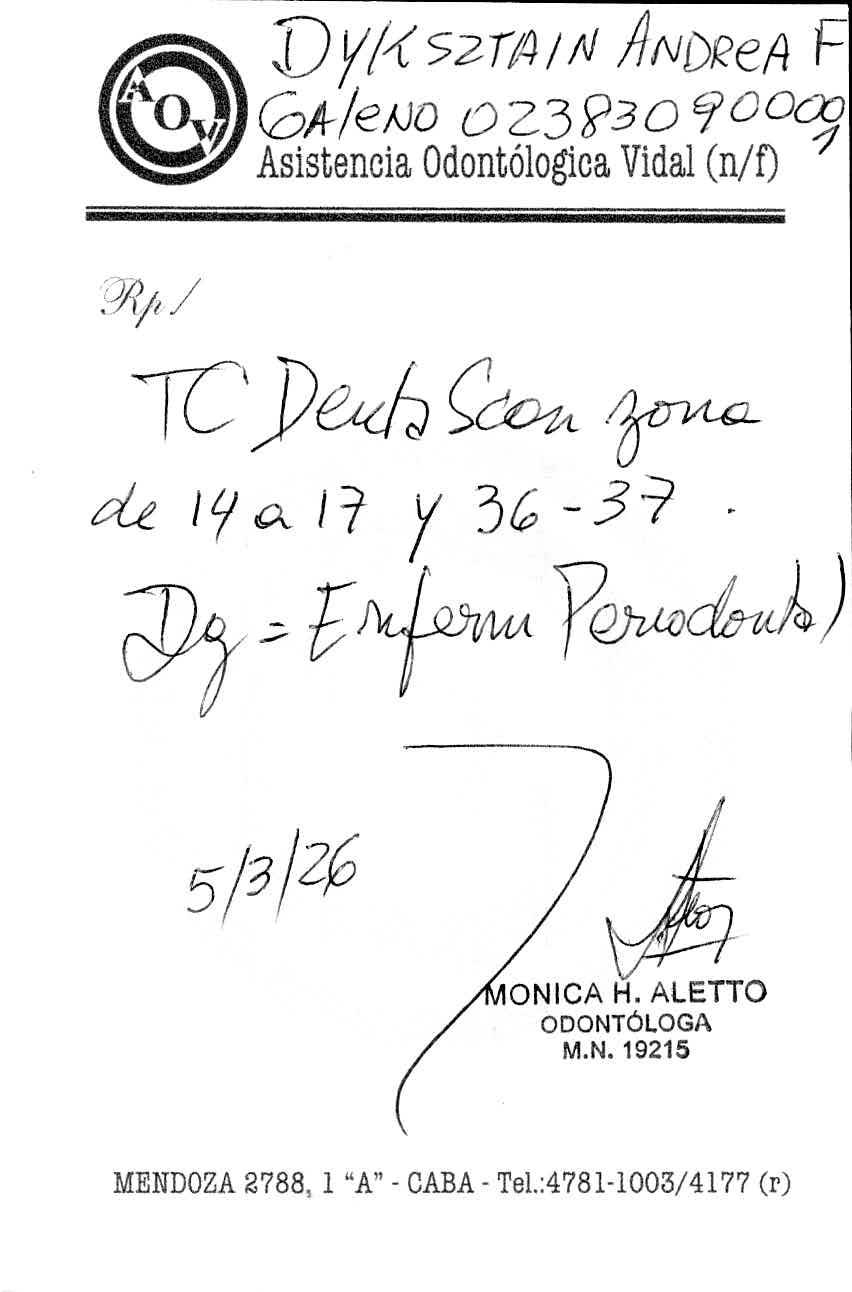 DYKSZTAIN ANDREA F
AOV
GALENO 02383090000
1
Asistencia Odontólogica Vidal (n/f)
Rp/
TC Denta Scan zona
de 14 a 17 y 36-37.
Dg = Enferm Periodontal
5/3/26
MONICA H. ALETTO
ODONTÓLOGA
M.N. 19215
MENDOZA 2788, 1 "A" - CABA - Tel.:4781-1003/4177 (r)